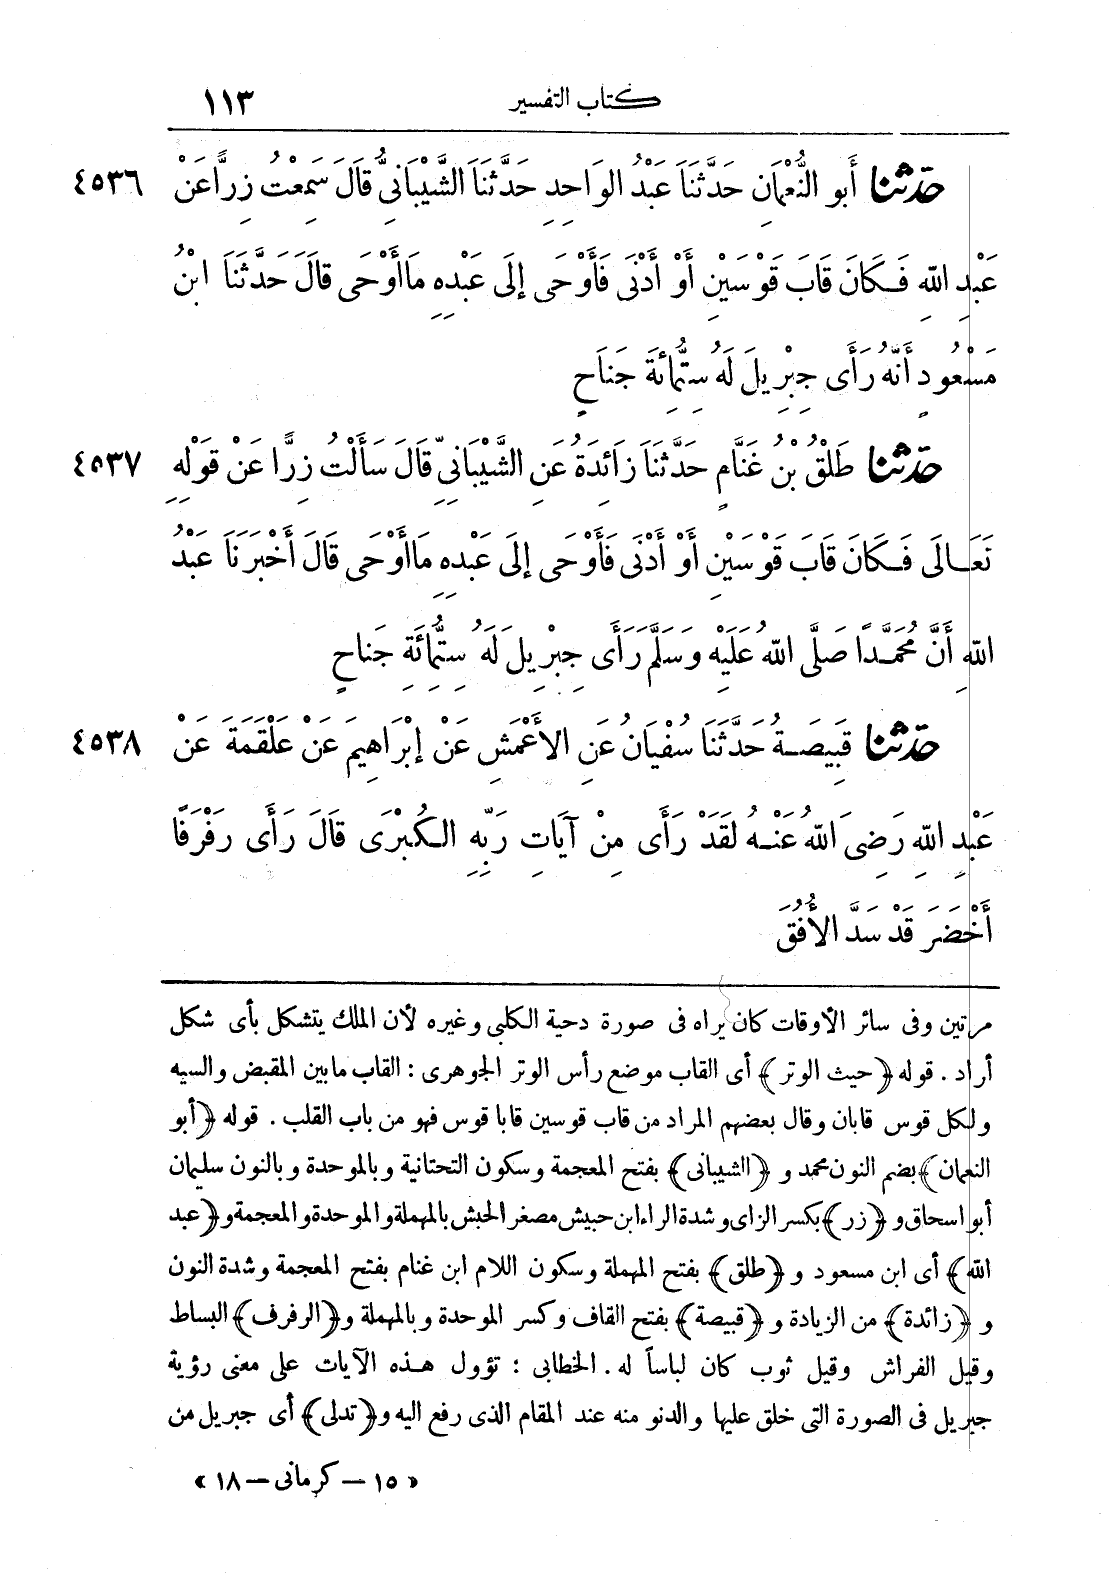 كتاب التفسير ١١٣
٤٥٣٦ حَدَّثَنَا أَبو النُّعْمَانِ حَدَّثَنَا عَبْدُ الوَاحِدِ حَدَّثَنَا الشَّيْبَانِيُّ قَالَ سَمِعْتُ زِرًّا عَنْ
عَبْدِ اللَّهِ فَكَانَ قَابَ قَوْسَيْنِ أَوْ أَدْنَى فَأَوْحَى إِلَى عَبْدِهِ مَا أَوْحَى قَالَ حَدَّثَنَا ابْنُ
مَسْعُودٍ أَنَّهُ رَأَى جِبْرِيلَ لَهُ سِتُّمِائَةِ جَنَاحٍ
٤٥٣٧ حَدَّثَنَا طَلْقُ بْنُ غَنَّامٍ حَدَّثَنَا زَائِدَةُ عَنِ الشَّيْبَانِيِّ قَالَ سَأَلْتُ زِرًّا عَنْ قَوْلِهِ
تَعَالَى فَكَانَ قَابَ قَوْسَيْنِ أَوْ أَدْنَى فَأَوْحَى إِلَى عَبْدِهِ مَا أَوْحَى قَالَ أَخْبَرَنَا عَبْدُ
اللَّهِ أَنَّ مُحَمَّدًا صَلَّى اللَّهُ عَلَيْهِ وَسَلَّمَ رَأَى جِبْرِيلَ لَهُ سِتُّمِائَةِ جَنَاحٍ
٤٥٣٨ حَدَّثَنَا قَبِيصَةُ حَدَّثَنَا سُفْيَانُ عَنِ الأَعْمَشِ عَنْ إِبْرَاهِيمَ عَنْ عَلْقَمَةَ عَنْ
عَبْدِ اللَّهِ رَضِىَ اللَّهُ عَنْهُ لَقَدْ رَأَى مِنْ آيَاتِ رَبِّهِ الكُبْرَى قَالَ رَأَى رَفْرَفًا
أَخْضَرَ قَدْ سَدَّ الأُفُقَ
مرتين وفى سائر الأوقات كان يراه فى صورة دحية الكلبى وغيره لأن الملك يتشكل بأى شكل
أراد . قوله ﴿حيث الوتر﴾ أى القاب موضع رأس الوتر الجوهرى : القاب ما بين المقبض والسيه
ولكل قوس قابان وقال بعضهم المراد من قاب قوسين قابا قوس فهو من باب القلب . قوله ﴿أبو
النعمان﴾ بضم النون محمد و ﴿الشيبانى﴾ بفتح المعجمة وسكون التحتانية وبالموحدة وبالنون سليمان
أبو اسحاق و ﴿زر﴾ بكسر الزاى وشدة الراء ابن حبيش مصغر الحبش بالمهملة والموحدة والمعجمة و﴿عبد
الله﴾ أى ابن مسعود و ﴿طلق﴾ بفتح المهملة وسكون اللام ابن غنام بفتح المعجمة وشدة النون
و ﴿زائدة﴾ من الزيادة و ﴿قبيصة﴾ بفتح القاف وكسر الموحدة وبالمهملة و﴿الرفرف﴾ البساط
وقيل الفراش وقيل ثوب كان لباساً له . الخطابى : تؤول هذه الآيات على معنى رؤية
جبريل فى الصورة التى خلق عليها والدنو منه عند المقام الذى رفع اليه و﴿تدلى﴾ أى جبريل من
« ١٥ — كرمانى — ١٨ »